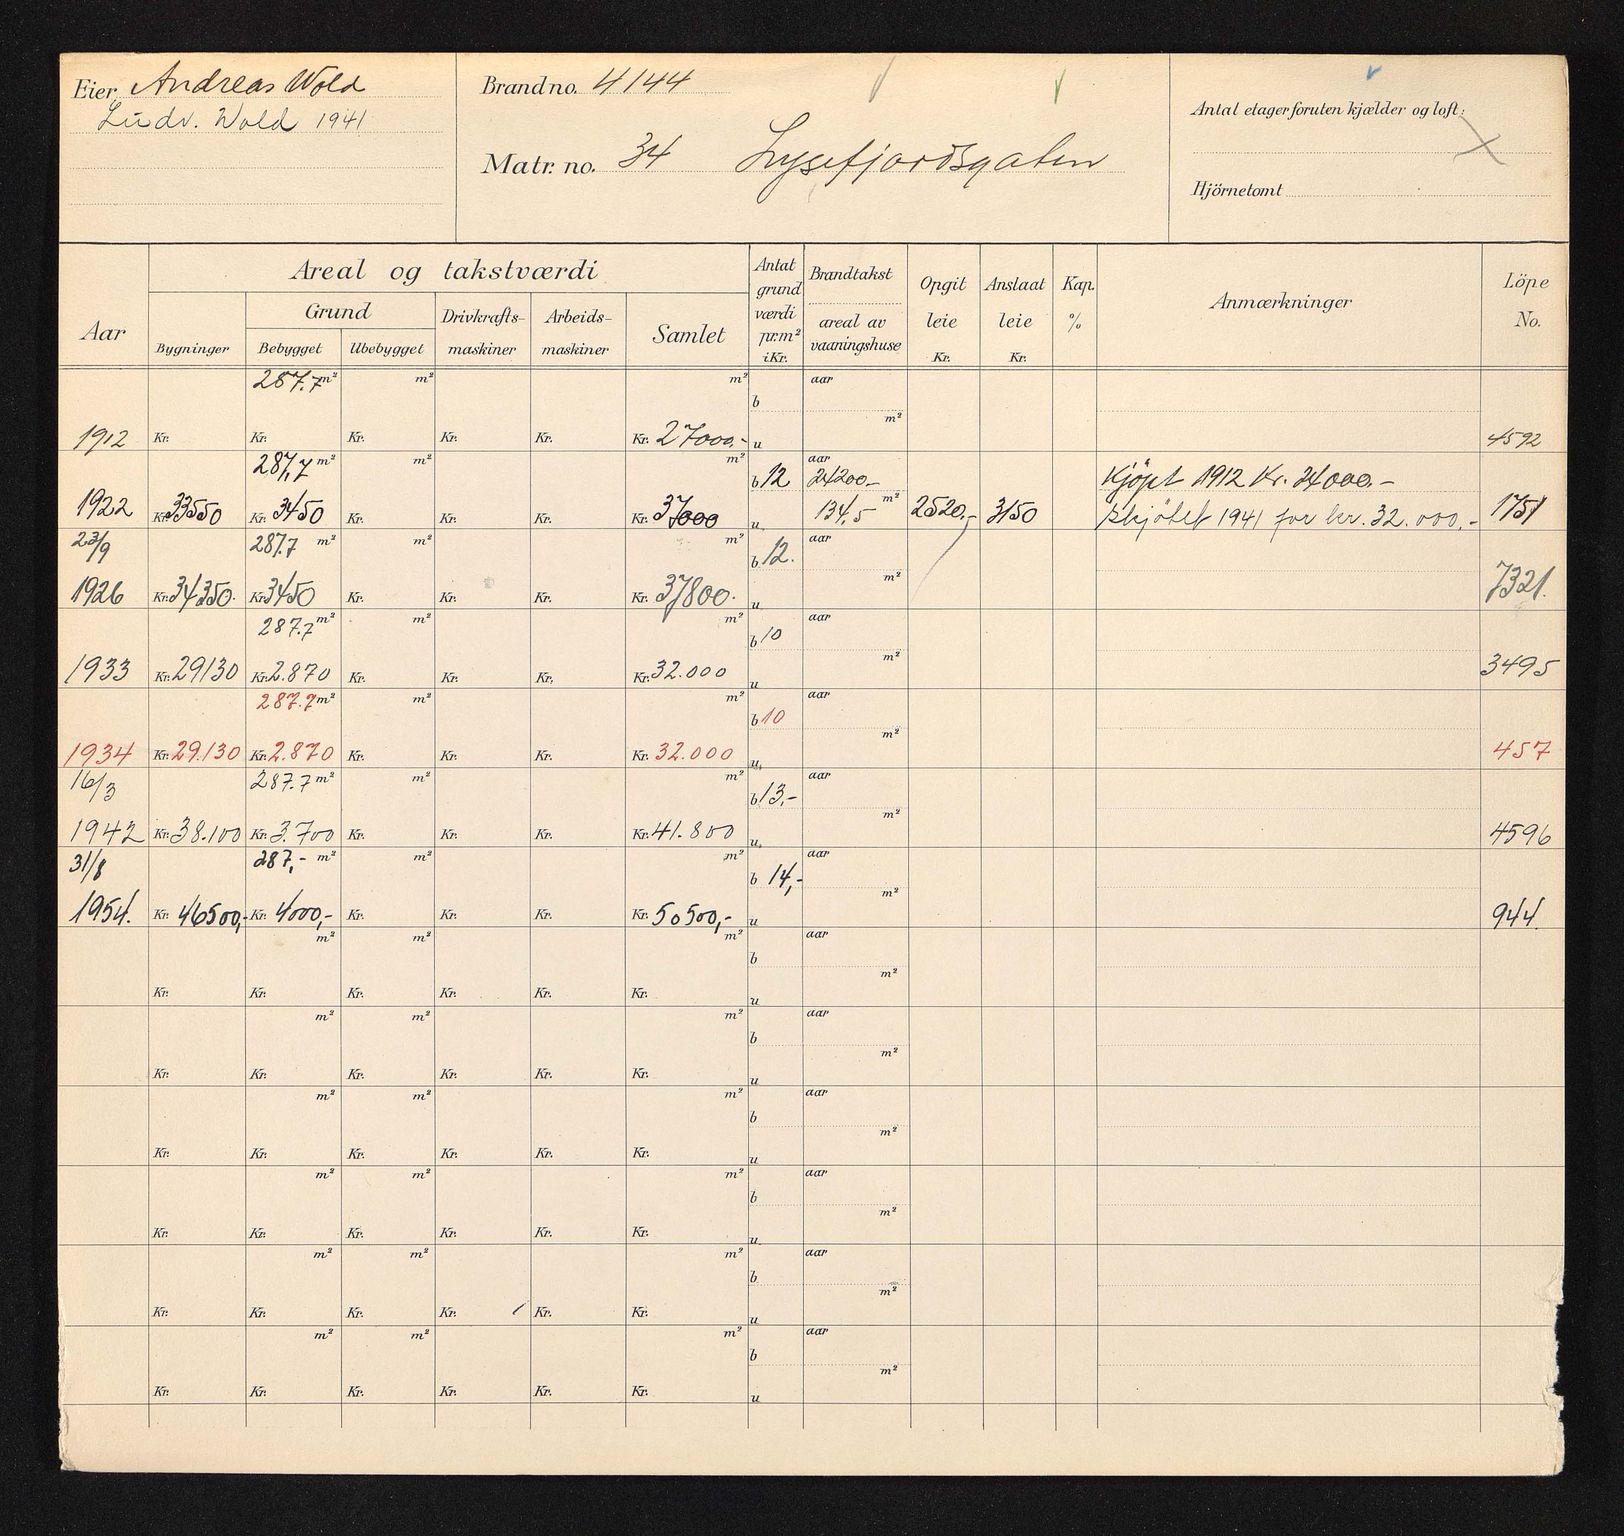 Eier Andreas Wold
Ludv. Wold 1941
Brand no. 4144
Matr. no. 34 Lysefjordsgaten
Antal etager foruten kjælder og loft:
Hjörnetomt
Aar
Areal og takstværdi
Grund
Bygninger
Bebygget
Ubebygget
Drivkrafts-
maskiner
Arbeids-
maskiner
Samlet
Antat
grund
værdi
pr.m²
i Kr.
Brandtakst
areal av
vaaningshuse
Opgit
leie
Kr.
Anslaat
leie
Kr.
Kap.
%
Anmærkninger
Löpe
No.
287.7 m² m² m² aar
b
m²
1912 Kr. Kr. Kr. Kr. Kr. Kr. 27000.- u 4592
287,7 m² m² m² b 12 aar 24200.- Kjöpt 1912 Kr. 24000.-
1922 Kr. 33550 Kr. 3450 Kr. Kr. Kr. Kr. 37000 u 134,5 m² 2520.- 3150 Skjötet 1941 for kr. 32.000,- 1751
23/9 287.7 m² m² m² b 12. aar
m²
1926 Kr. 34350. Kr. 3450 Kr. Kr. Kr. Kr. 37800. u 7321.
287.7 m² m² m² b 10 aar
m²
1933 Kr. 29130 Kr. 2.870 Kr. Kr. Kr. Kr. 32.000 u 3495
287.7 m² m² m² b 10 aar
m²
1934 Kr. 29.130 Kr. 2.870 Kr. Kr. Kr. Kr. 32.000 u 457
16/3 287.7 m² m² m² b 13,- aar
m²
1942 Kr. 38.100 Kr. 3.700 Kr. Kr. Kr. Kr. 41.800 u 4596
31/8 287,- m² m² m² b 14,- aar
m²
1954. Kr. 46500,- Kr. 4000,- Kr. Kr. Kr. Kr. 50500,- u 944.
m² m² m² aar
b
m²
Kr. Kr. Kr. Kr. Kr. Kr. u
m² m² m² aar
b
m²
Kr. Kr. Kr. Kr. Kr. Kr. u
m² m² m² aar
b
m²
Kr. Kr. Kr. Kr. Kr. Kr. u
m² m² m² aar
b
m²
Kr. Kr. Kr. Kr. Kr. Kr. u
m² m² m² aar
b
m²
Kr. Kr. Kr. Kr. Kr. Kr. u
m² m² m² aar
b
m²
Kr. Kr. Kr. Kr. Kr. Kr. u